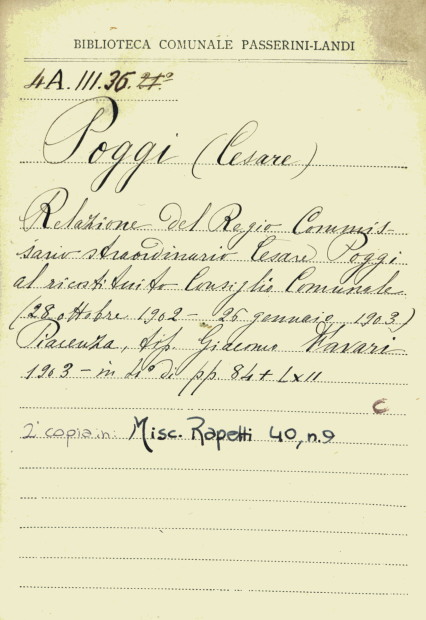 BIBLIOTECA COMUNALE PASSERINI-LANDI
4A.III.36.
Poggi (Cesare)
Relazione del Regio Commis-
sario straordinario Cesare Poggi
al ricostituito Consiglio Comunale
(28 ottobre 1902 - 26 gennaio 1903)
Piacenza, tip. Giacomo Favari
1903 - in 4º di pp 84 + LXII
C
2ª copia in: Misc. Rapetti 40, n.9